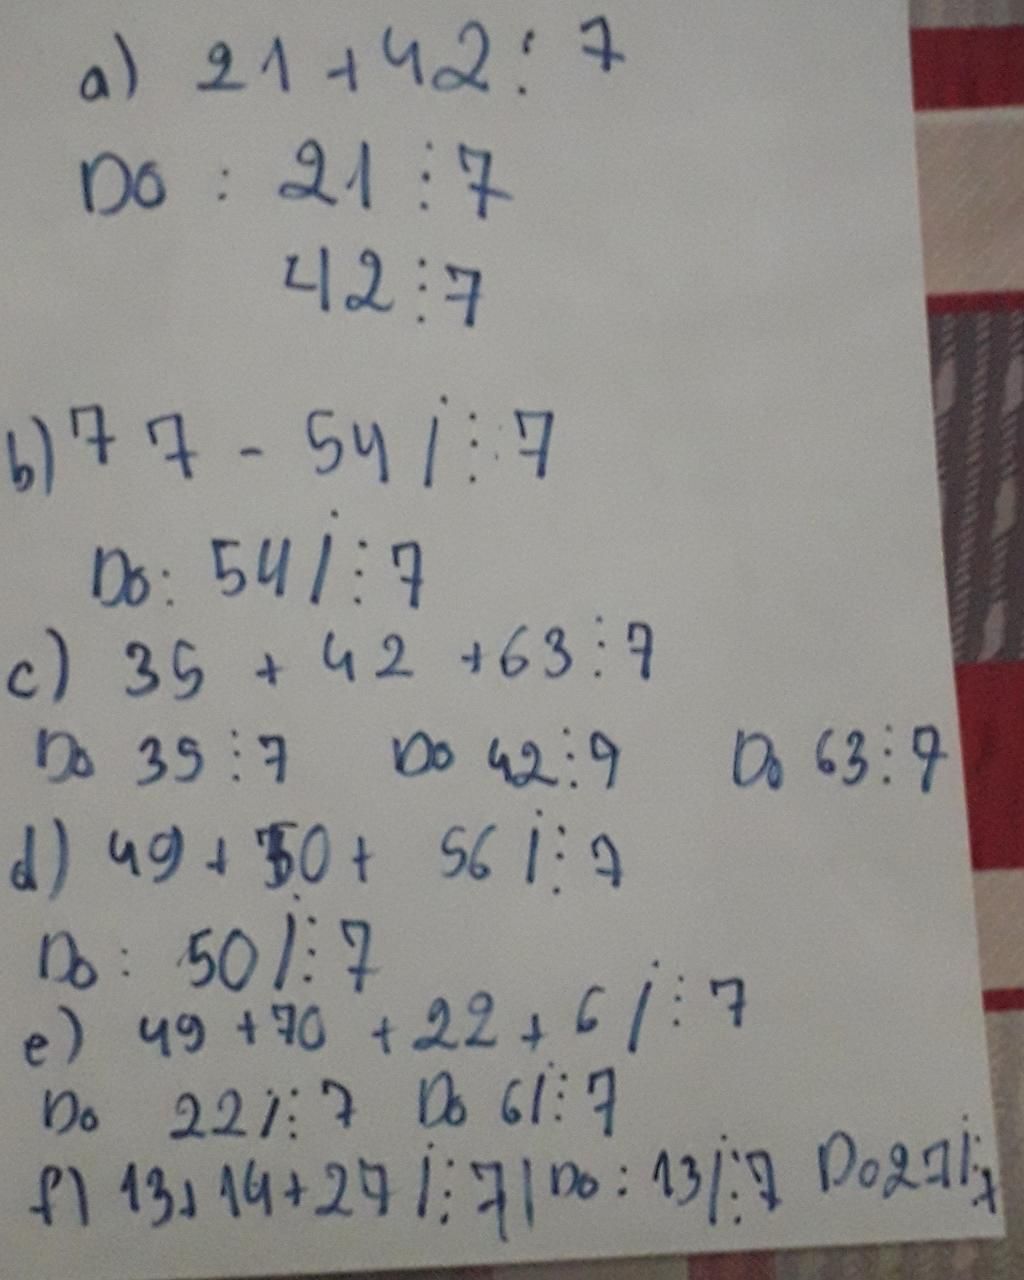 a) 21 + 42 ⋮ 7
Do : 21 ⋮ 7
42 ⋮ 7
b) 77 - 54 /⋮ 7
Do : 54 /⋮ 7
c) 35 + 42 + 63 ⋮ 7
Do 35 ⋮ 7 Do 42 ⋮ 9 Do 63 ⋮ 7
d) 49 + 50 + 56 /⋮ 7
Do : 50 /⋮ 7
e) 49 + 70 + 22 + 6 /⋮ 7
Do 22 /⋮ 7 Do 6 /⋮ 7
f) 13 + 14 + 27 /⋮ 7 | Do : 13 /⋮ 7 Do 27 /⋮ 7